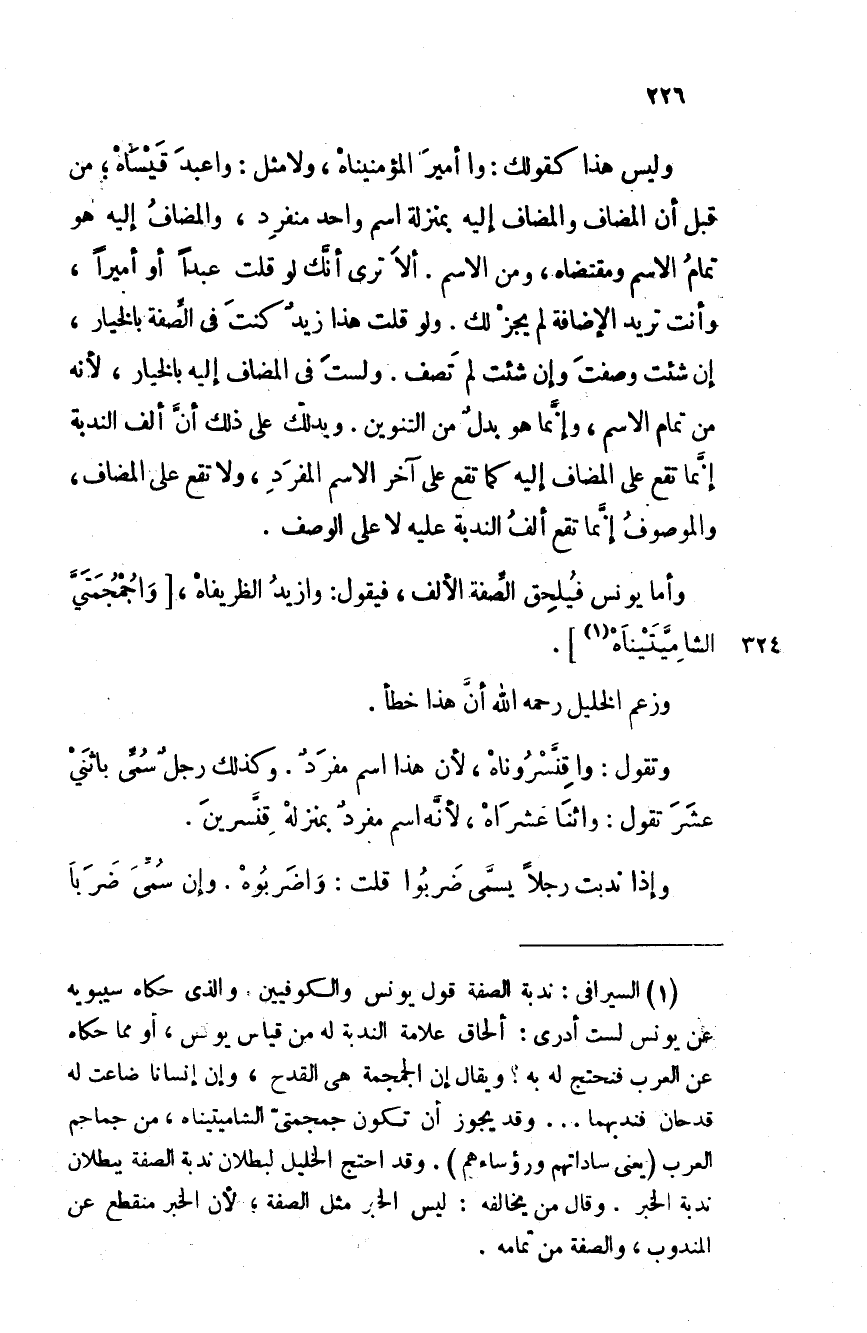 ٢٢٦
وليس هذا كقولك : وا أميرَ المؤمنيناهْ ، ولا مثل : واعبدَ قَيْسَاهْ ؛ من
قبل أن المضاف والمضاف إليه بمنزلة اسم واحد منفرِد ، والمضافُ إليه هو
تمامُ الاسم ومقتضاه، ومن الاسم . ألاَ ترى أنَّك لو قلت عبداً أو أميراً ،
وأنت تريد الإضافة لم يجزْ لك . ولو قلت هذا زيدٌ كنتَ فى الصِّفة بالخيار ،
إن شئت وصفتَ وإن شئت لم تَصف . ولستَ فى المضاف إليه بالخيار ، لأنه
من تمام الاسم ، وإنَّما هو بدلٌ من التنوين . ويدلّك على ذلك أنَّ ألف الندبة
إنَّما تقع على المضاف إليه كما تقع على آخر الاسم المفرَدِ ، ولا تقع على المضاف،
والموصوفُ إنَّما تقع ألفُ الندبة عليه لا على الوصف .
وأما يونس فيُلحِق الصِّفة الألف ، فيقول: وازيدُ الظريفاهْ ، [ وَاجُمْجُمَتَيَّ
٣٢٤ الشامِيَّتَيْنَاهْ(١) ] .
وزعم الخليل رحمه الله أنَّ هذا خطأ .
وتقول : وا قِنَّسْرُوناهْ ، لأن هذا اسم مفرَدٌ . وكذلك رجلٌ سُمِّى باثنَيْ
عشَرَ تقول : واثنَا عَشرَاهْ ، لأنَّه اسم مفردٌ بمنزلهْ قِنَّسرينَ .
وإذا ندبت رجلاً يسمَّى ضَربُوا قلت : وَاضَربُوهْ . وإن سُمِّىَ ضَرَبَا
(١) السيرافى : ندبة الصفة قول يونس والكوفيين . والذى حكاه سيبويه
عن يونس لست أدرى : ألحاق علامة الندبة له من قياس يونس ، أو مما حكاه
عن العرب فنحتج له به ؟ ويقال إن الجمجمة هى القدح ، وإن إنسانا ضاعت له
قدحان فندبهما ... وقد يجوز أن تكون جمجمتىّ الشاميتيناه ، من جماجم
العرب (يعنى ساداتهم ورؤساءهم) . وقد احتج الخليل لبطلان ندبة الصفة ببطلان
ندبة الخبر . وقال من يخالفه : ليس الخبر مثل الصفة ؛ لأن الخبر منقطع عن
المندوب ، والصفة من تمامه .